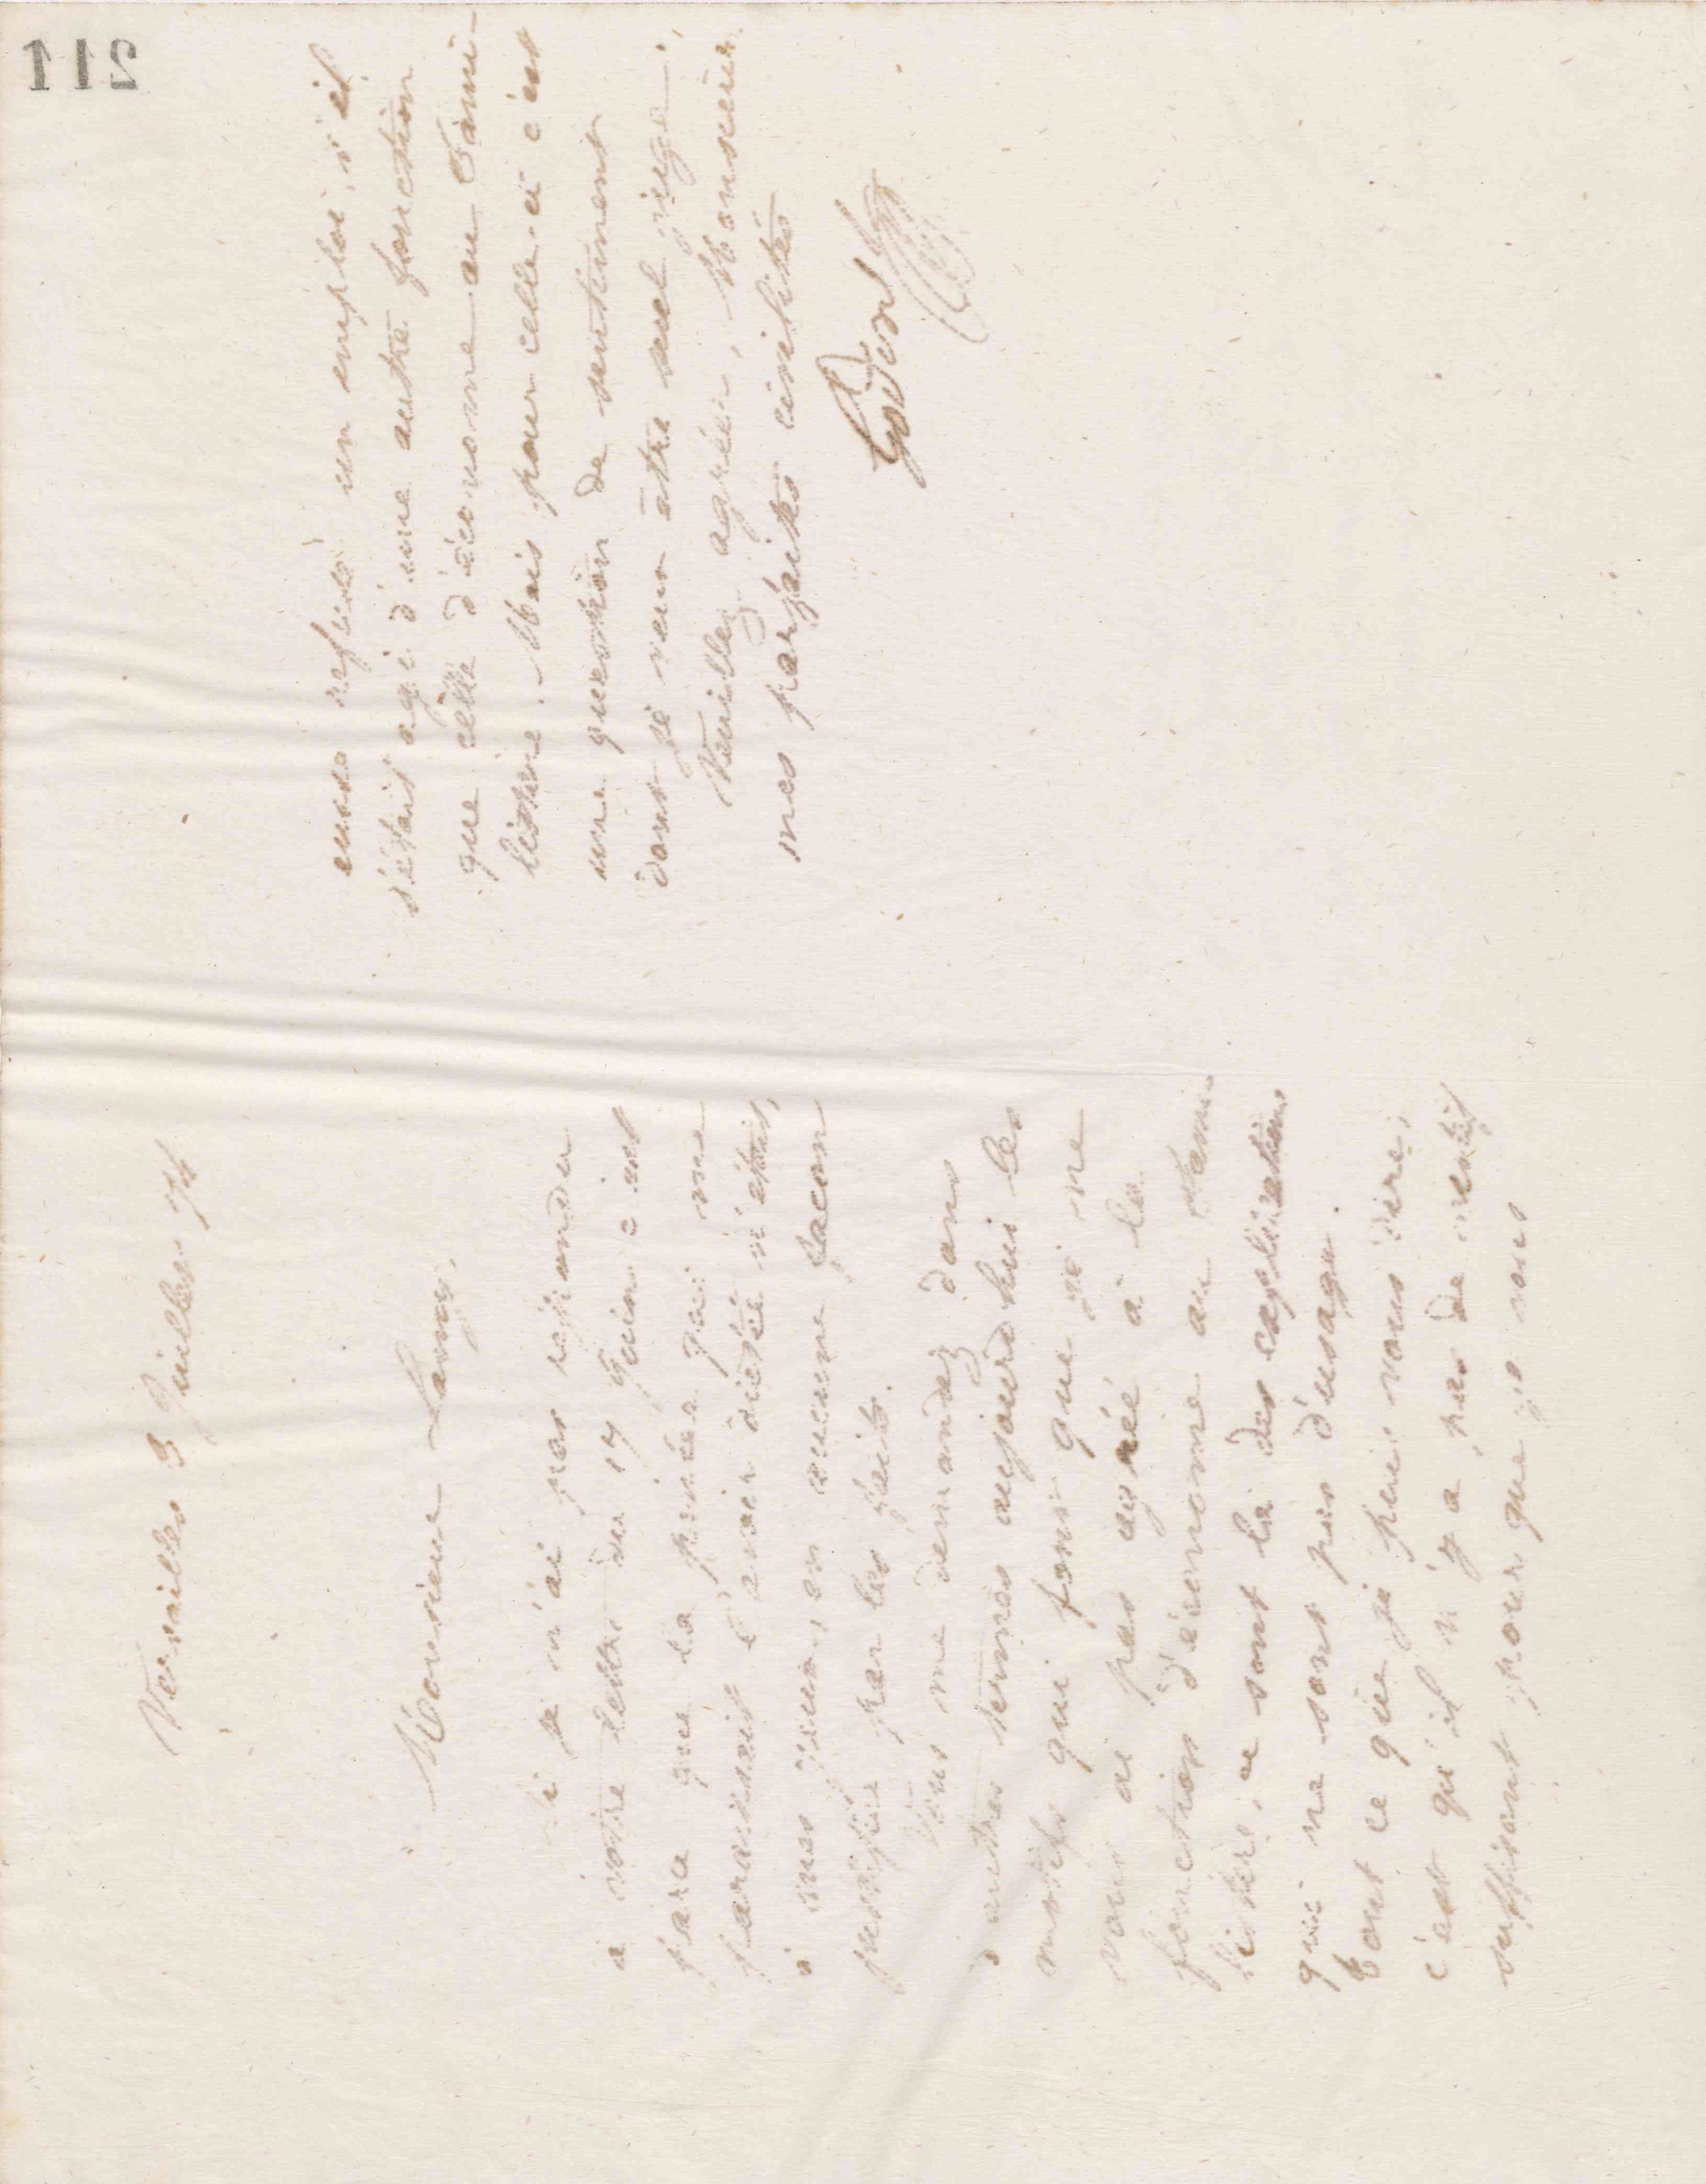 211
Versailles 3 Juillet 74
Monsieur Lamy,
Si je n'ai pas répondu
à votre lettre du 17 Juin c'est
parce que la pensée qui me
paraissait l'avoir dictée n'était,
à mes yeux, en aucune façon
justifiée par les faits.
Vous me demandez dans
d'autres termes aujourd'hui les
motifs qui font que je ne
vous ai pas agréé à la
fonction d'économe au Fami-
listère, ce sont là des explications
qui ne sont pas d'usage.
Tout ce que je puis vous dire,
c'est qu'il n'y a pas de motif
suffisant pour que je vous
eusse refusé un emploi, s'il
s'était agi d'une autre fonction
que celle d'économe au Fami-
listère. Mais pour celle-ci c'est
une question de sentiment
dont je veux être seul juge.
Veuillez agréer, Monsieur
mes parfaites civilités
Godin